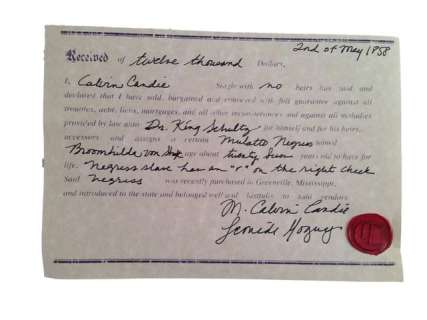 2nd of May 1858
Received of twelve thousand Dollars,
I, Calvin Candie Single with no heirs has said and
declared that I have sold, bargained and removed with full guarantee against all
troubles, debt, liens, mortgages, and all other inconveniences and against all maladies
provided by law also Dr. King Schultz for himself and for his heirs,
accessors and assigns a certain Mulatto Negress named
Broomhilda von age about twenty years old to have for
life. Negress slave has an "r" on the right cheek
Said negress was recently purchased in Greenville, Mississippi,
and introduced to the state and belonged well and to said vendors
M. Calvin Candie
Leonide Moguy